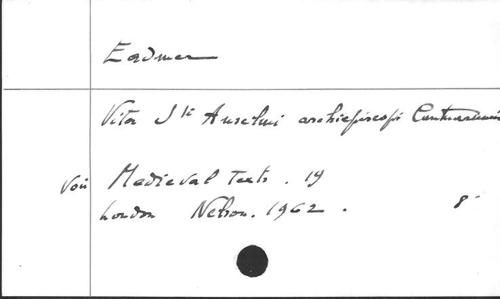 Eadmer
Vita Sti Anselmi archiepiscopi Cantuariensis
Voir Medieval Texts . 19
London Nelson. 1962 . 8°